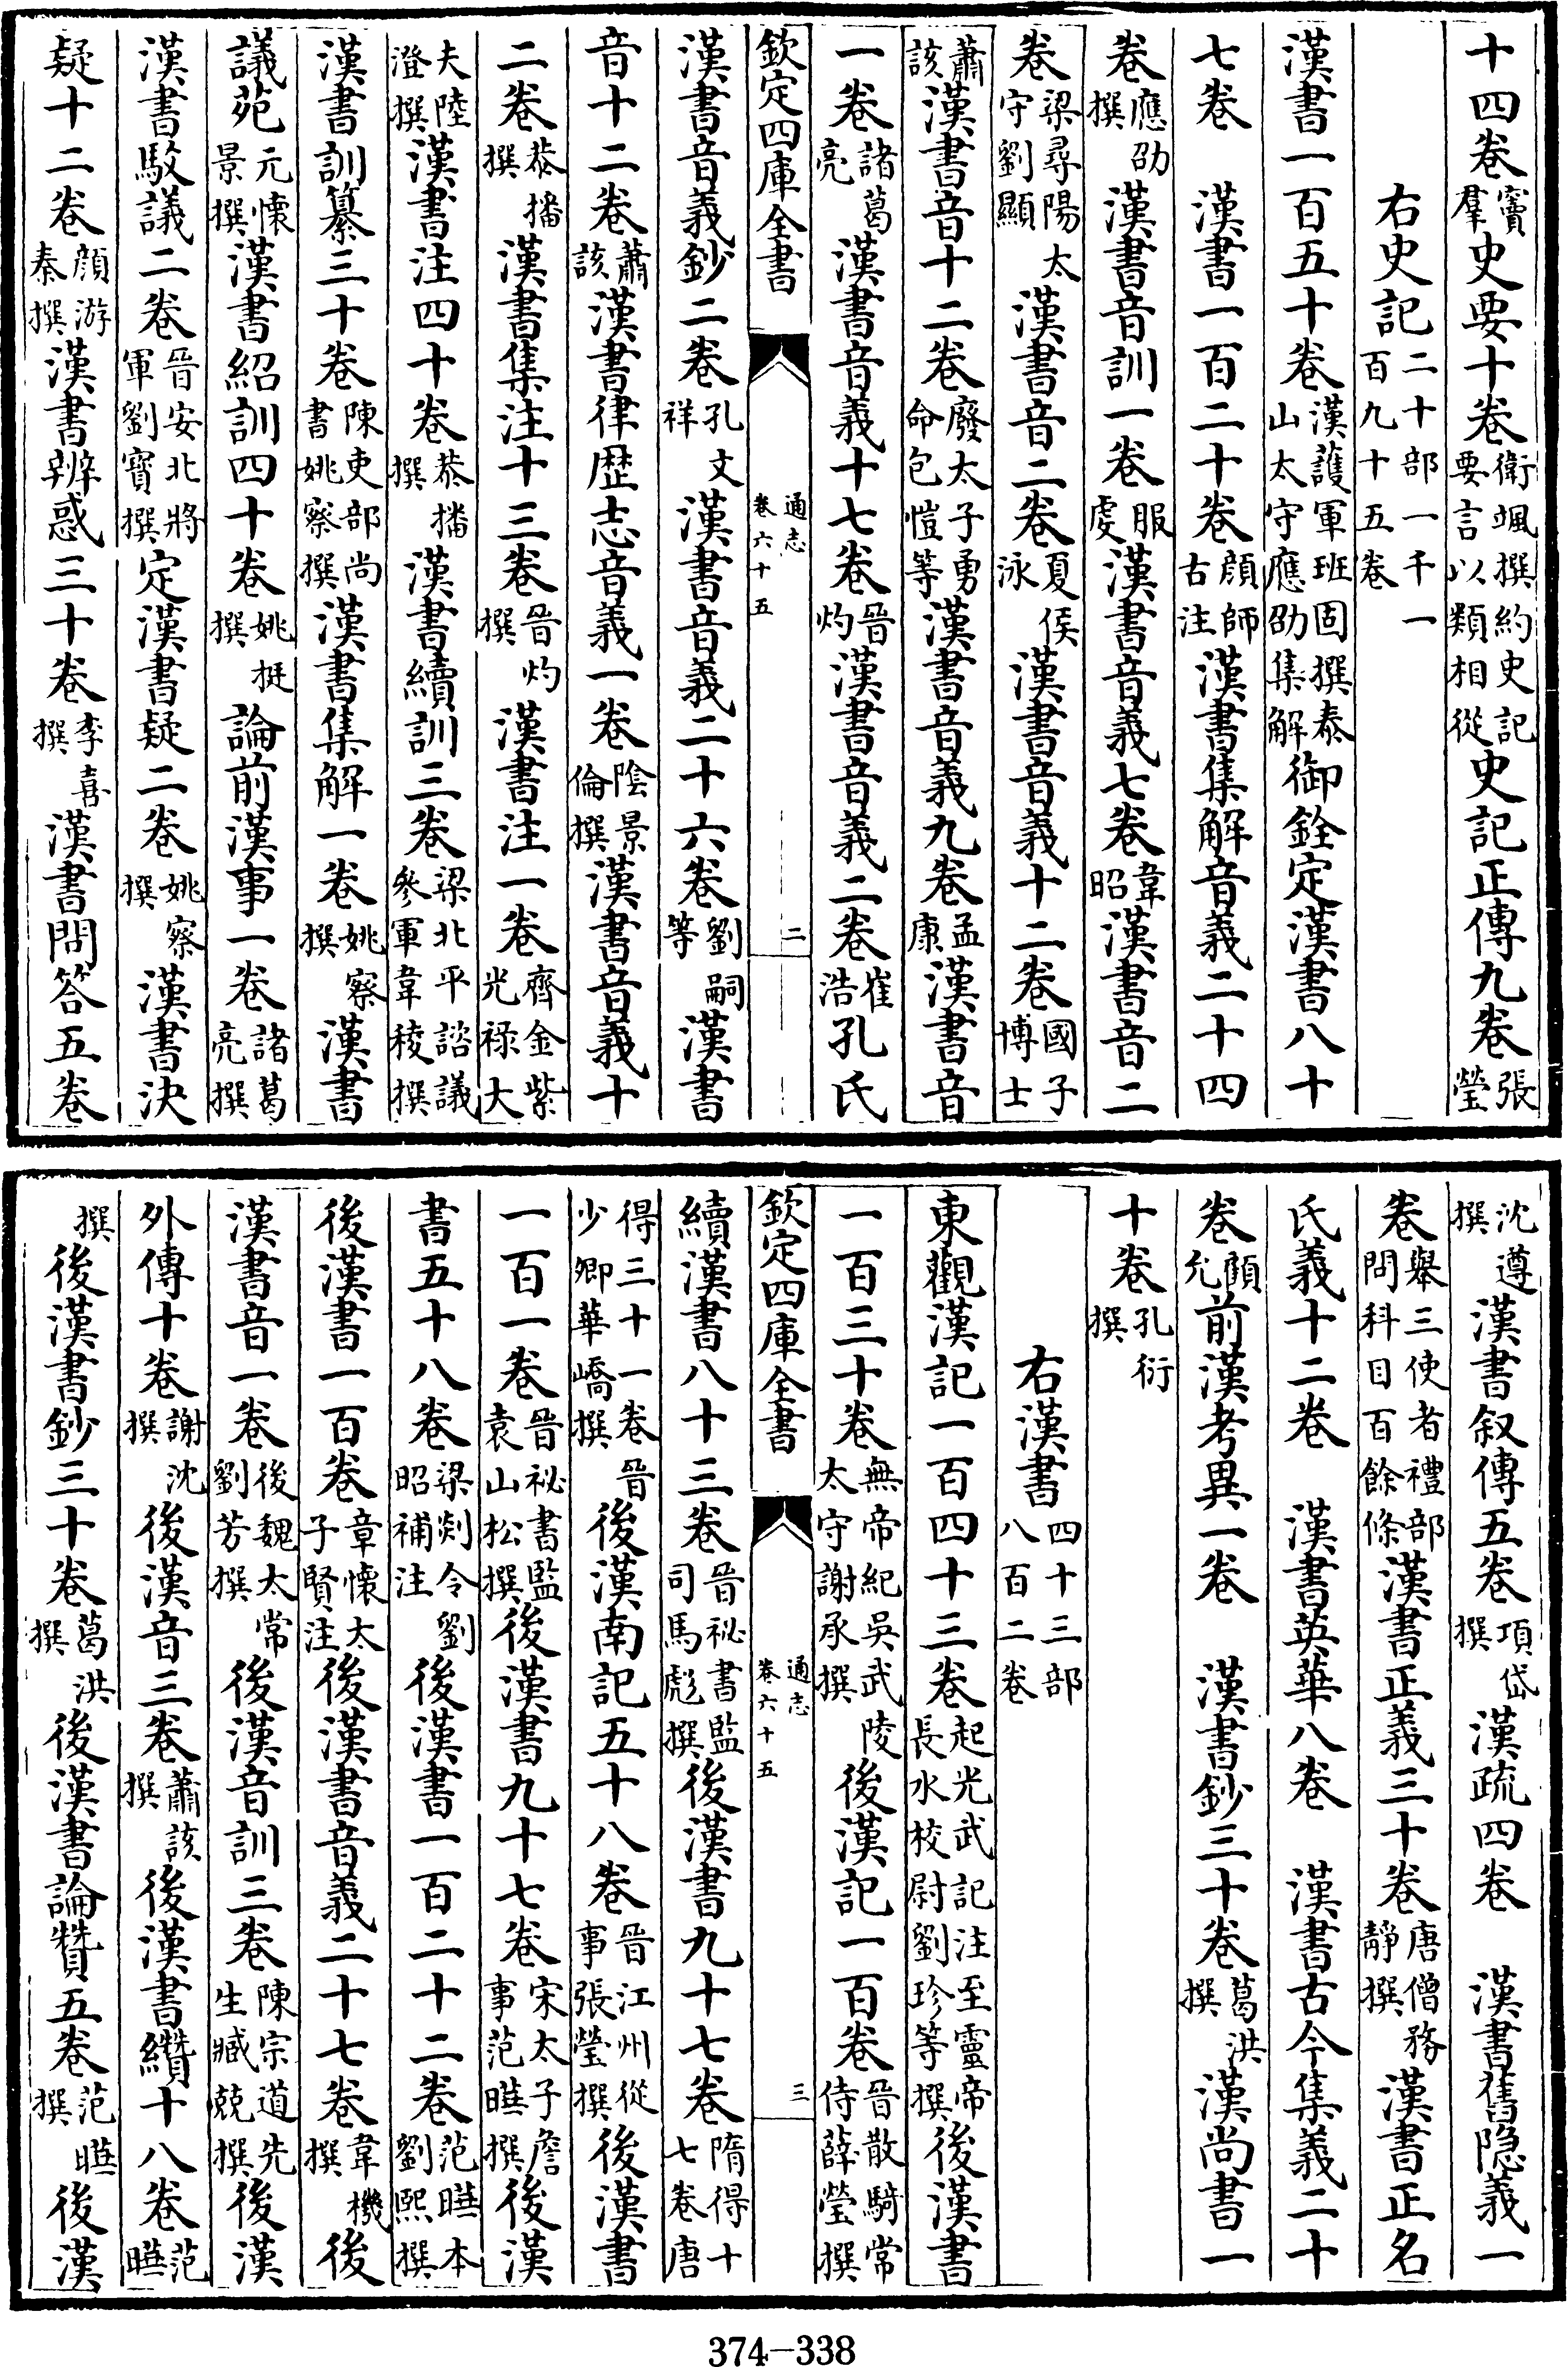 十四卷竇羣史要十卷衛颯撰約史記要言以類相從史記正傳九卷張瑩
右史記二十部一千一百九十五卷
漢書一百五十卷漢護軍班固撰泰山太守應劭集解御銓定漢書八十
七卷　漢書一百二十卷顔師古注漢書集解音義二十四
卷應劭撰漢書音訓一卷服虔漢書音義七卷韋昭漢書音二
卷梁尋陽太守劉顯漢書音二卷夏侯泳漢書音義十二卷國子博士
蕭該漢書音十二卷廢太子勇命包愷等漢書音義九卷孟康漢書音
一卷諸葛亮漢書音義十七卷晉灼漢書音義二卷崔浩孔氏
欽定四庫全書　通志卷六十五　二
漢書音義鈔二卷孔文祥漢書音義二十六卷劉嗣等漢書
音十二卷蕭該漢書律歴志音義一卷陰景倫撰漢書音義十
二卷恭播撰漢書集注十三卷晉灼撰漢書注一卷齊金紫光祿大
夫陸澄撰漢書注四十卷恭播撰漢書續訓三卷梁北平諮議參軍韋稜撰
漢書訓纂三十卷陳吏部尚書姚察撰漢書集解一卷姚察撰漢書
議苑元懷景撰漢書紹訓四十卷姚挺撰論前漢事一卷諸葛亮撰
漢書駁議二卷晉安北將軍劉寶撰定漢書疑二卷姚察撰漢書決
疑十二卷顔游秦撰漢書辨惑三十卷李喜撰漢書問答五卷
沈遵撰漢書叙傳五卷項岱撰漢疏四卷　漢書舊隠義一
卷舉三使者禮部問科目百餘條漢書正義三十卷唐僧務靜撰漢書正名
氏義十二卷　漢書英華八卷　漢書古今集義二十
卷顔允前漢考異一卷　漢書鈔三十卷葛洪撰漢尚書一
十卷孔衍撰
右漢書四十三部八百二卷
東觀漢記一百四十三卷起光武記注至靈帝長水校尉劉珍等撰後漢書
一百三十卷無帝紀吳武陵太守謝承撰後漢記一百卷晉散騎常侍薛瑩撰
欽定四庫全書　通志卷六十五　三
續漢書八十三卷晉祕書監司馬彪撰後漢書九十七卷隋得十七卷唐
得三十一卷晉少卿華嶠撰後漢南記五十八卷晉江州從事張瑩撰後漢書
一百一卷晉祕書監袁山松撰後漢書九十七卷宋太子詹事范曄撰後漢
書五十八卷梁剡令劉昭補注後漢書一百二十二卷范曄本劉熙撰
後漢書一百卷章懷太子賢注後漢書音義二十七卷韋機撰後
漢書音一卷後魏太常劉芳撰後漢音訓三卷陳宗道先生臧兢撰後漢
外傳十卷謝沈撰後漢音三卷蕭該撰後漢書纘十八卷范曄
撰後漢書鈔三十卷葛洪撰後漢書論贊五卷范曄撰後漢
374-338